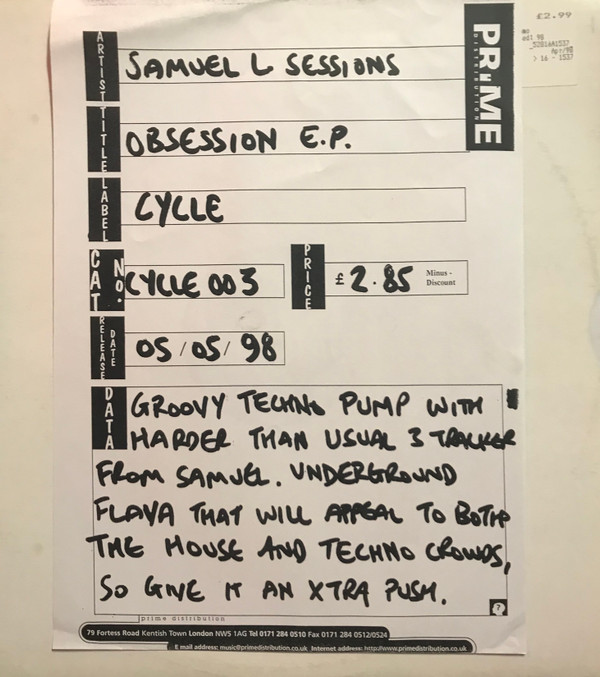 £2.99
edl 98
Apr/98
> 16 - 1537
PR:ME
DISTRIBUTION
ARTIST SAMUEL L SESSIONS
TITLE OBSESSION E.P.
LABEL CYCLE
CAT No. CYCLE 003 PRICE £ 2.85 Minus - Discount
RELEASE DATE 05/05/98
DATA GROOVY TECHNO PUMP WITH
HARDER THAN USUAL 3 TRACKER
FROM SAMUEL. UNDERGROUND
FLAVA THAT WILL APPEAL TO BOTH
THE HOUSE AND TECHNO CROWDS,
SO GIVE IT AN XTRA PUSH.
?
prime distribution
79 Fortess Road Kentish Town London NW5 1AG Tel 0171 284 0510 Fax 0171 284 0512/0524
E mail address: music@primedistribution.co.uk Internet address: http://www.primedistribution.co.uk